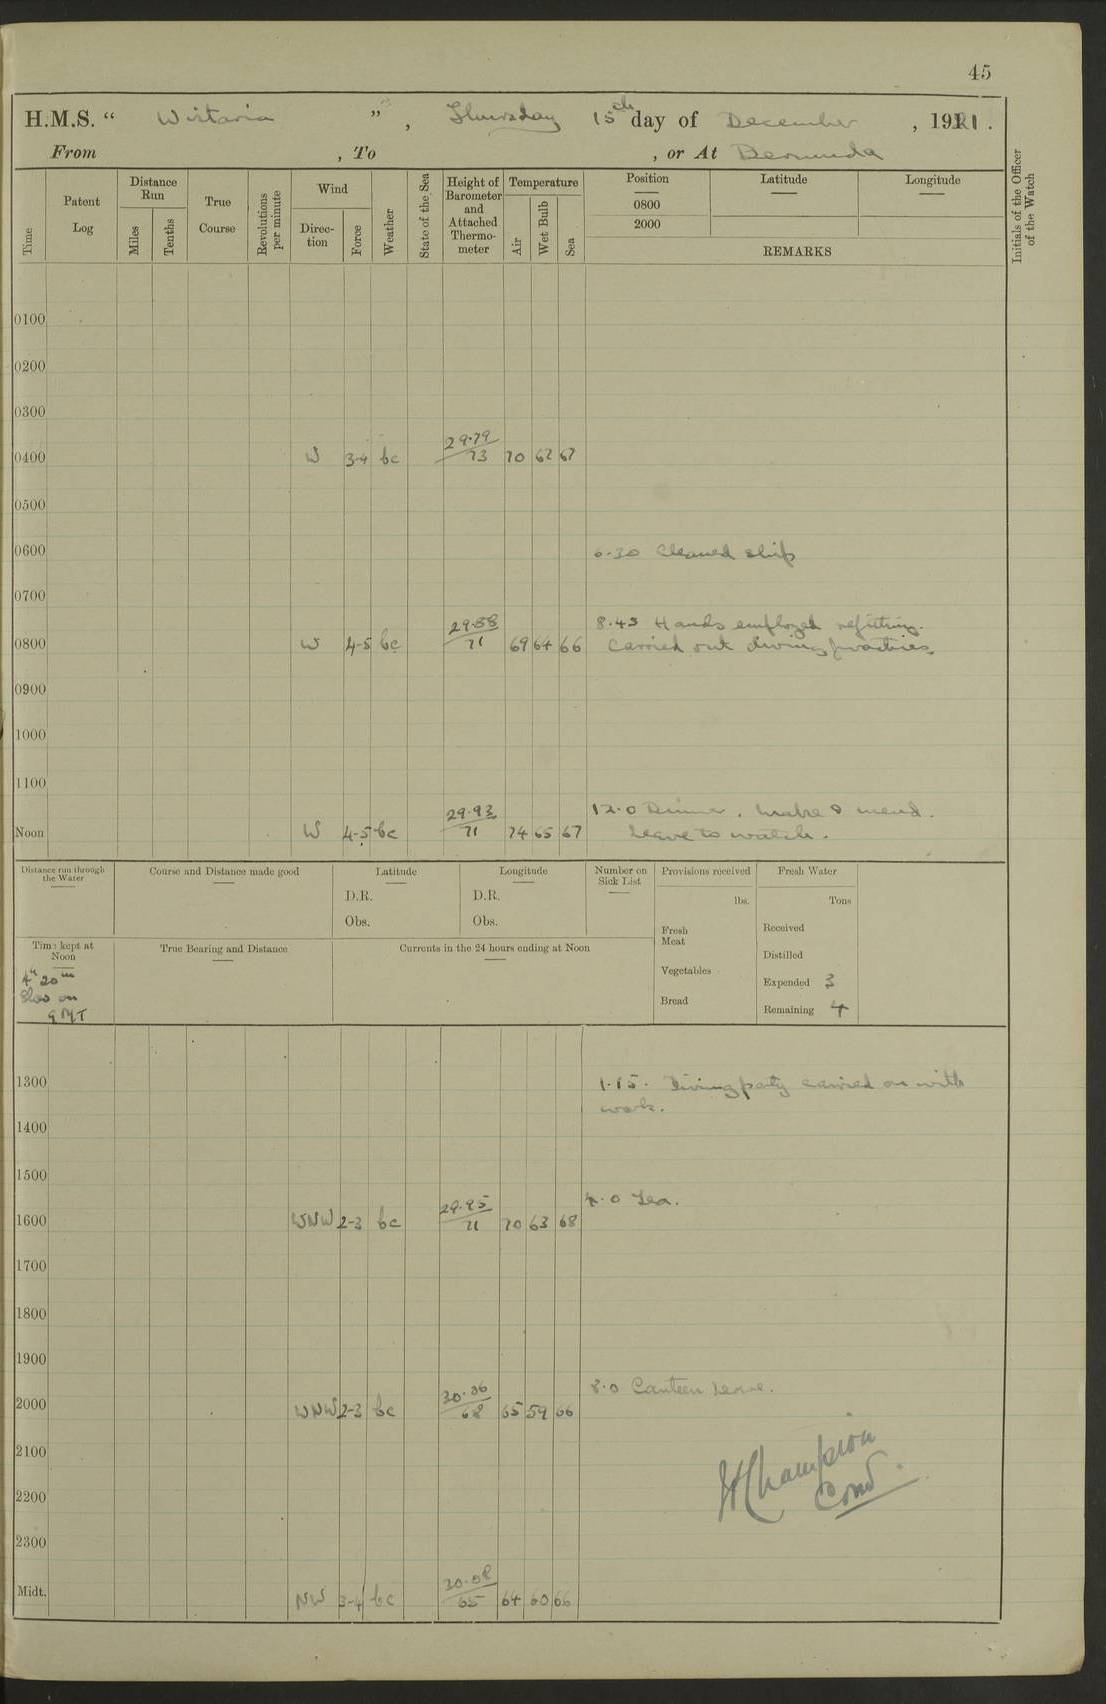 45
H.M.S. “ Wistaria ” , Thursday 15th day of December , 1921.
From , To , or At Bermuda
Time
Patent Log
Distance Run
Miles
Tenths
True Course
Revolutions per minute
Wind
Direction
Force
Weather
State of the Sea
Height of Barometer and Attached Thermometer
Temperature
Air
Wet Bulb
Sea
Position
0800
2000
Latitude
Longitude
REMARKS
Initials of the Officer of the Watch
0100
0200
0300
0400 W 3-4 bc 29.79/73 70 62 67
0500
0600 6.30 Cleaned ship
0700
8.45 Hands employed refitting.
0800 W 4-5 bc 29.88/71 69 64 66 Carried out diving practices
0900
1000
1100
12.0 Dinner. Make & mend.
Noon W 4-5 bc 29.93/71 74 65 67 Leave to watch.
Distance run through the Water
Course and Distance made good
Latitude
D.R.
Obs.
Longitude
D.R.
Obs.
Number on Sick List
Provisions received
lbs.
Fresh Meat
Vegetables
Bread
Fresh Water
Tons
Received
Distilled
Expended 3
Remaining 4
Time kept at Noon
4h 20m
Slow on
GMT
True Bearing and Distance
Currents in the 24 hours ending at Noon
1300 1.15. Diving party carried on with
work.
1400
1500
4.0 Tea.
1600 WNW 2-3 bc 29.95/71 70 63 68
1700
1800
1900
8.0 Canteen leave.
2000 WNW 2-3 bc 30.06/68 65 59 66
2100
2200
2300
Champion
Comd.
Midt. NW 3-4 bc 30.08/65 64 60 66